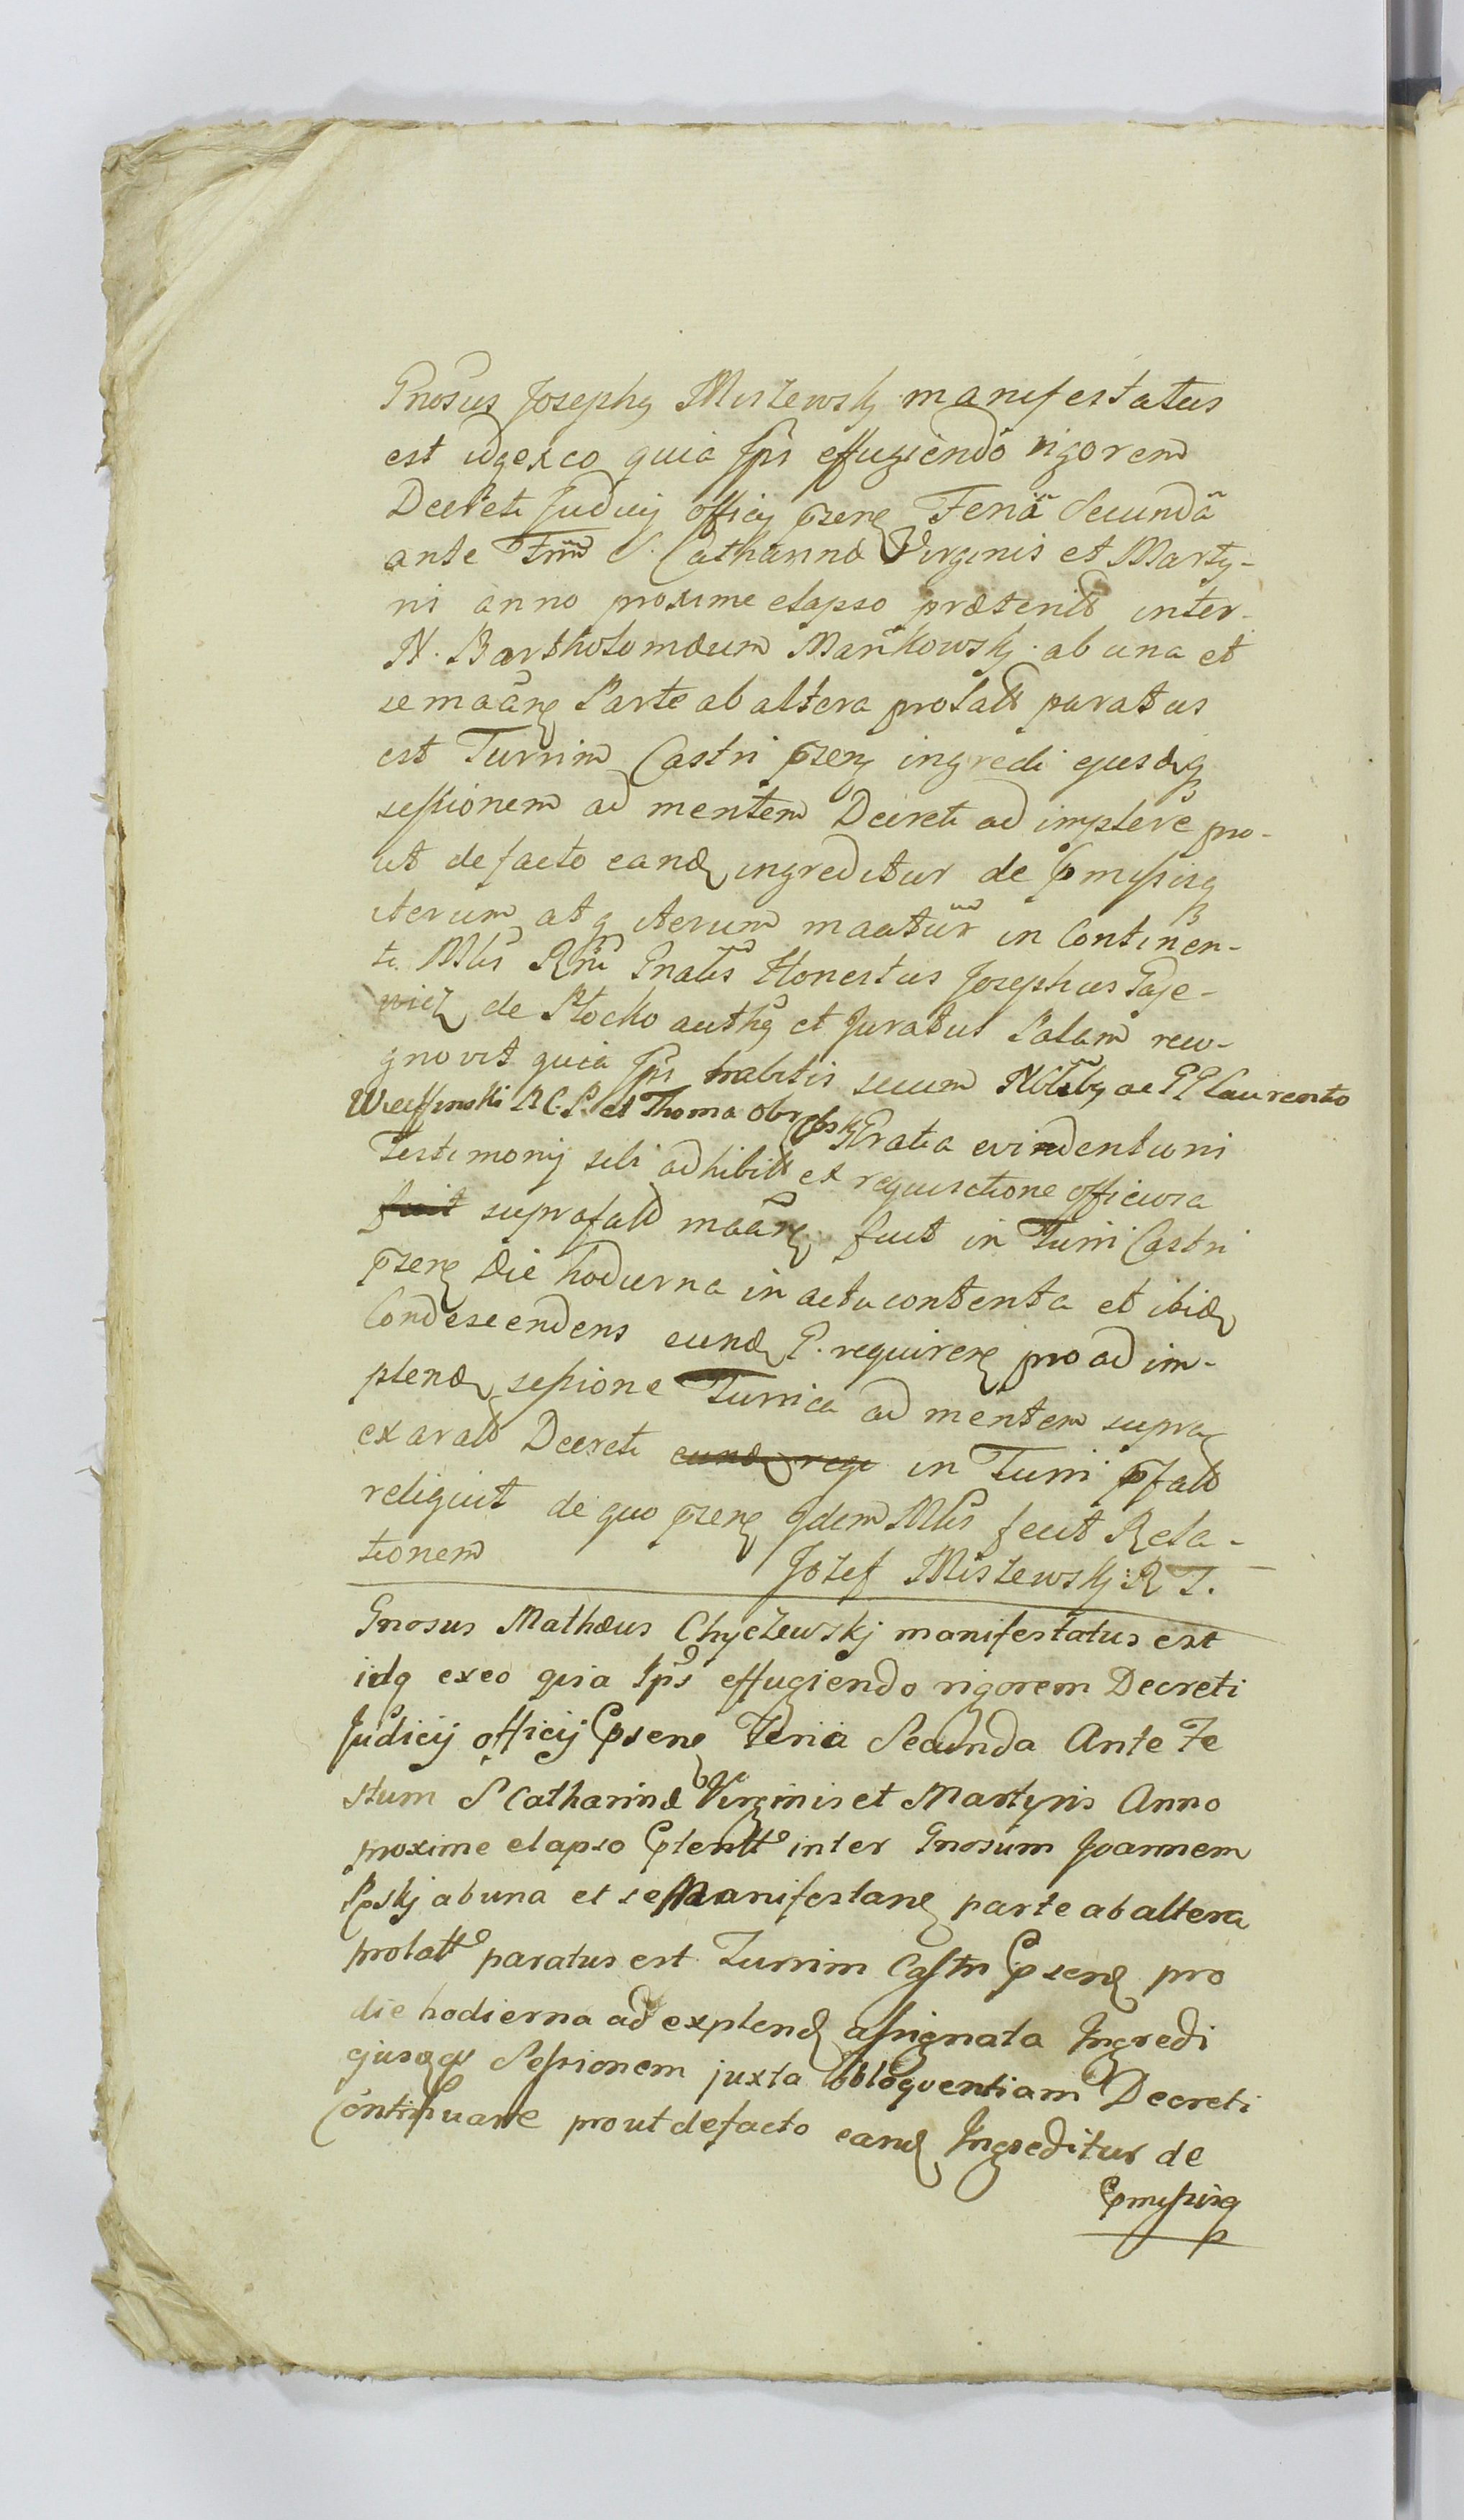 Gnosus Josephg Miszewskj manifestatus
est idqexeo quia Ipš effugiendo rigorem
Decreti Judicij officij pzenę Feria Secunda
ante Ftum S. Catharinæ Virginis et Marty-
ris anno proxime elapso præterito inter
N. Bartholomæum Mańkowskj ab una et
se maãnę Parte ab altera prolatt paratus
est Turrim Castri pzenę ingredi ejusdq
sessionem ad mentem Decreti ad implere pro-
ut de facto eand ingreditur de Pmissisq
iterum atq iterum maatur in Continen-
ti. Mlis Rni Gnalis Honestus Josephus Gaje-
wicz de Plocko authg et Juratus Palam reco-
gnovit quia Ipš habitis secum Nblibg ac GG Laurento
R. C. P. et Thoma Gratia evidentioris
Testimonij sibi adhibitt ex requisitione officiosa
fuit suprafatt maãnę fuit in Turri Castri
pzenę Die hodierna in actu contenta et ibid
Condescendens eund G. requirenę pro ad im-
plend sessione Turrica ad mentem supra
exaratt Decreti eund reqe in Turri pfatt
reliquit de quo pzenę Idem Mlis fecit Rela-
tionem Jozef Miszewskj R T.
Gnosus Mathæus Chyczewskj manifestatus est
idq exeo quia Ipš effugiendo rigorem Decreti
Judicij officij Psenę Feria Secunda Ante Fe
stum S Catharinæ Virginis et Martyris Anno
proxime elapso Pteritto inter Gnosum Joannem
ab una et se Manifestanę parte ab altera
prolatto paratus est Turrim Castri Psenę pro
die hodierna ad explend assignata Ingredi
ejusqq Sessionem juxta obloquentiam Decreti
Continuare prout defacto eand Ingreditur de
Pmissisq